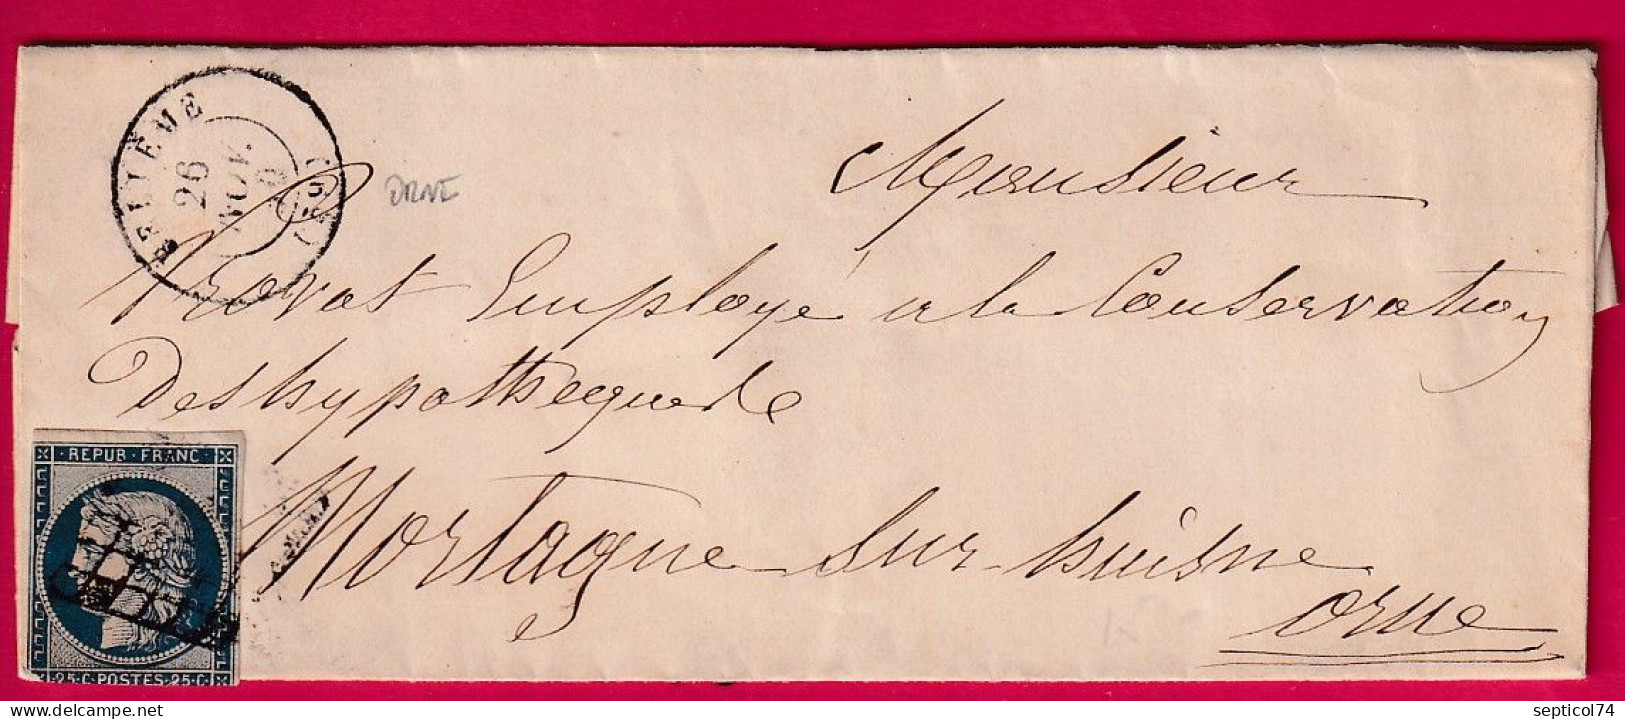 BELLÊME
26
NOV.
ORNE
Monsieur
Provost Employé a la Conservation
Des hypothecque de
Mortagne sur-huisne
orne
REPUB · FRANC
25·C POSTES·25·C
delcampe.net
septicol74